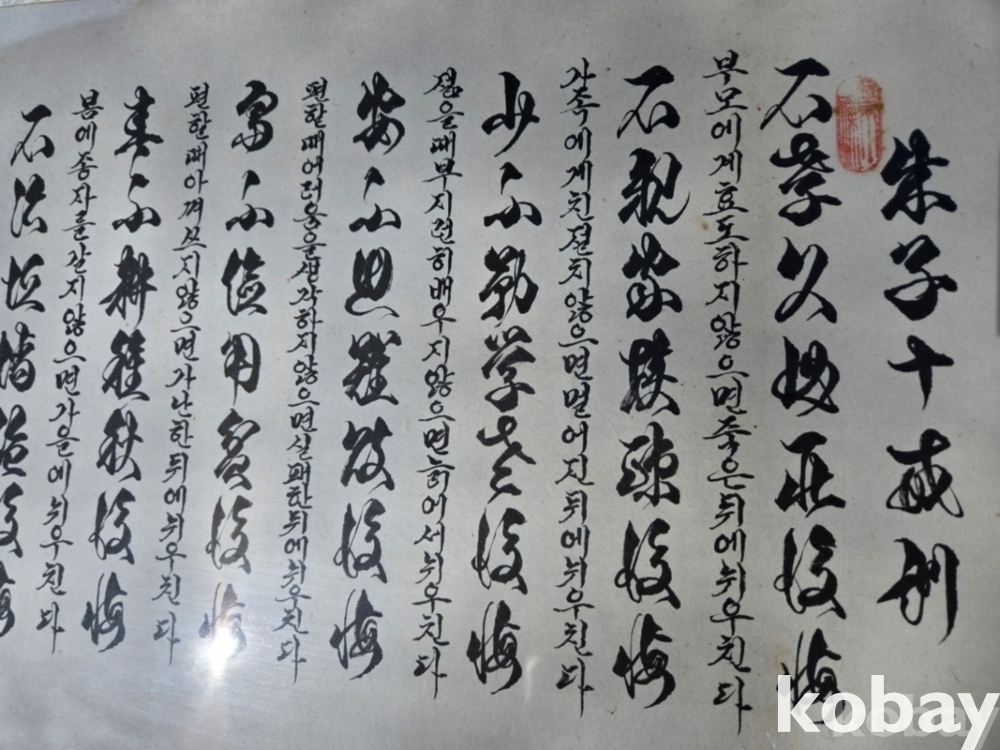 朱子十戒訓
不孝父母死後悔
부모에게효도하지않으면죽은뒤에뉘우친다
不親家族疎後悔
가족에게친절치않으면멀어진뒤에뉘우친다
少不勤學老後悔
젊을때부지런히배우지않으면늙어서뉘우친다
安不思難敗後悔
편한때어려움을생각하지않으면실패한뒤에뉘우친다
富不儉用貧後悔
편한때아껴쓰지않으면가난한뒤에뉘우친다
春不耕種秋後悔
봄에종자를갈지않으면가을에뉘우친다
不治垣墻盜後悔
kobay